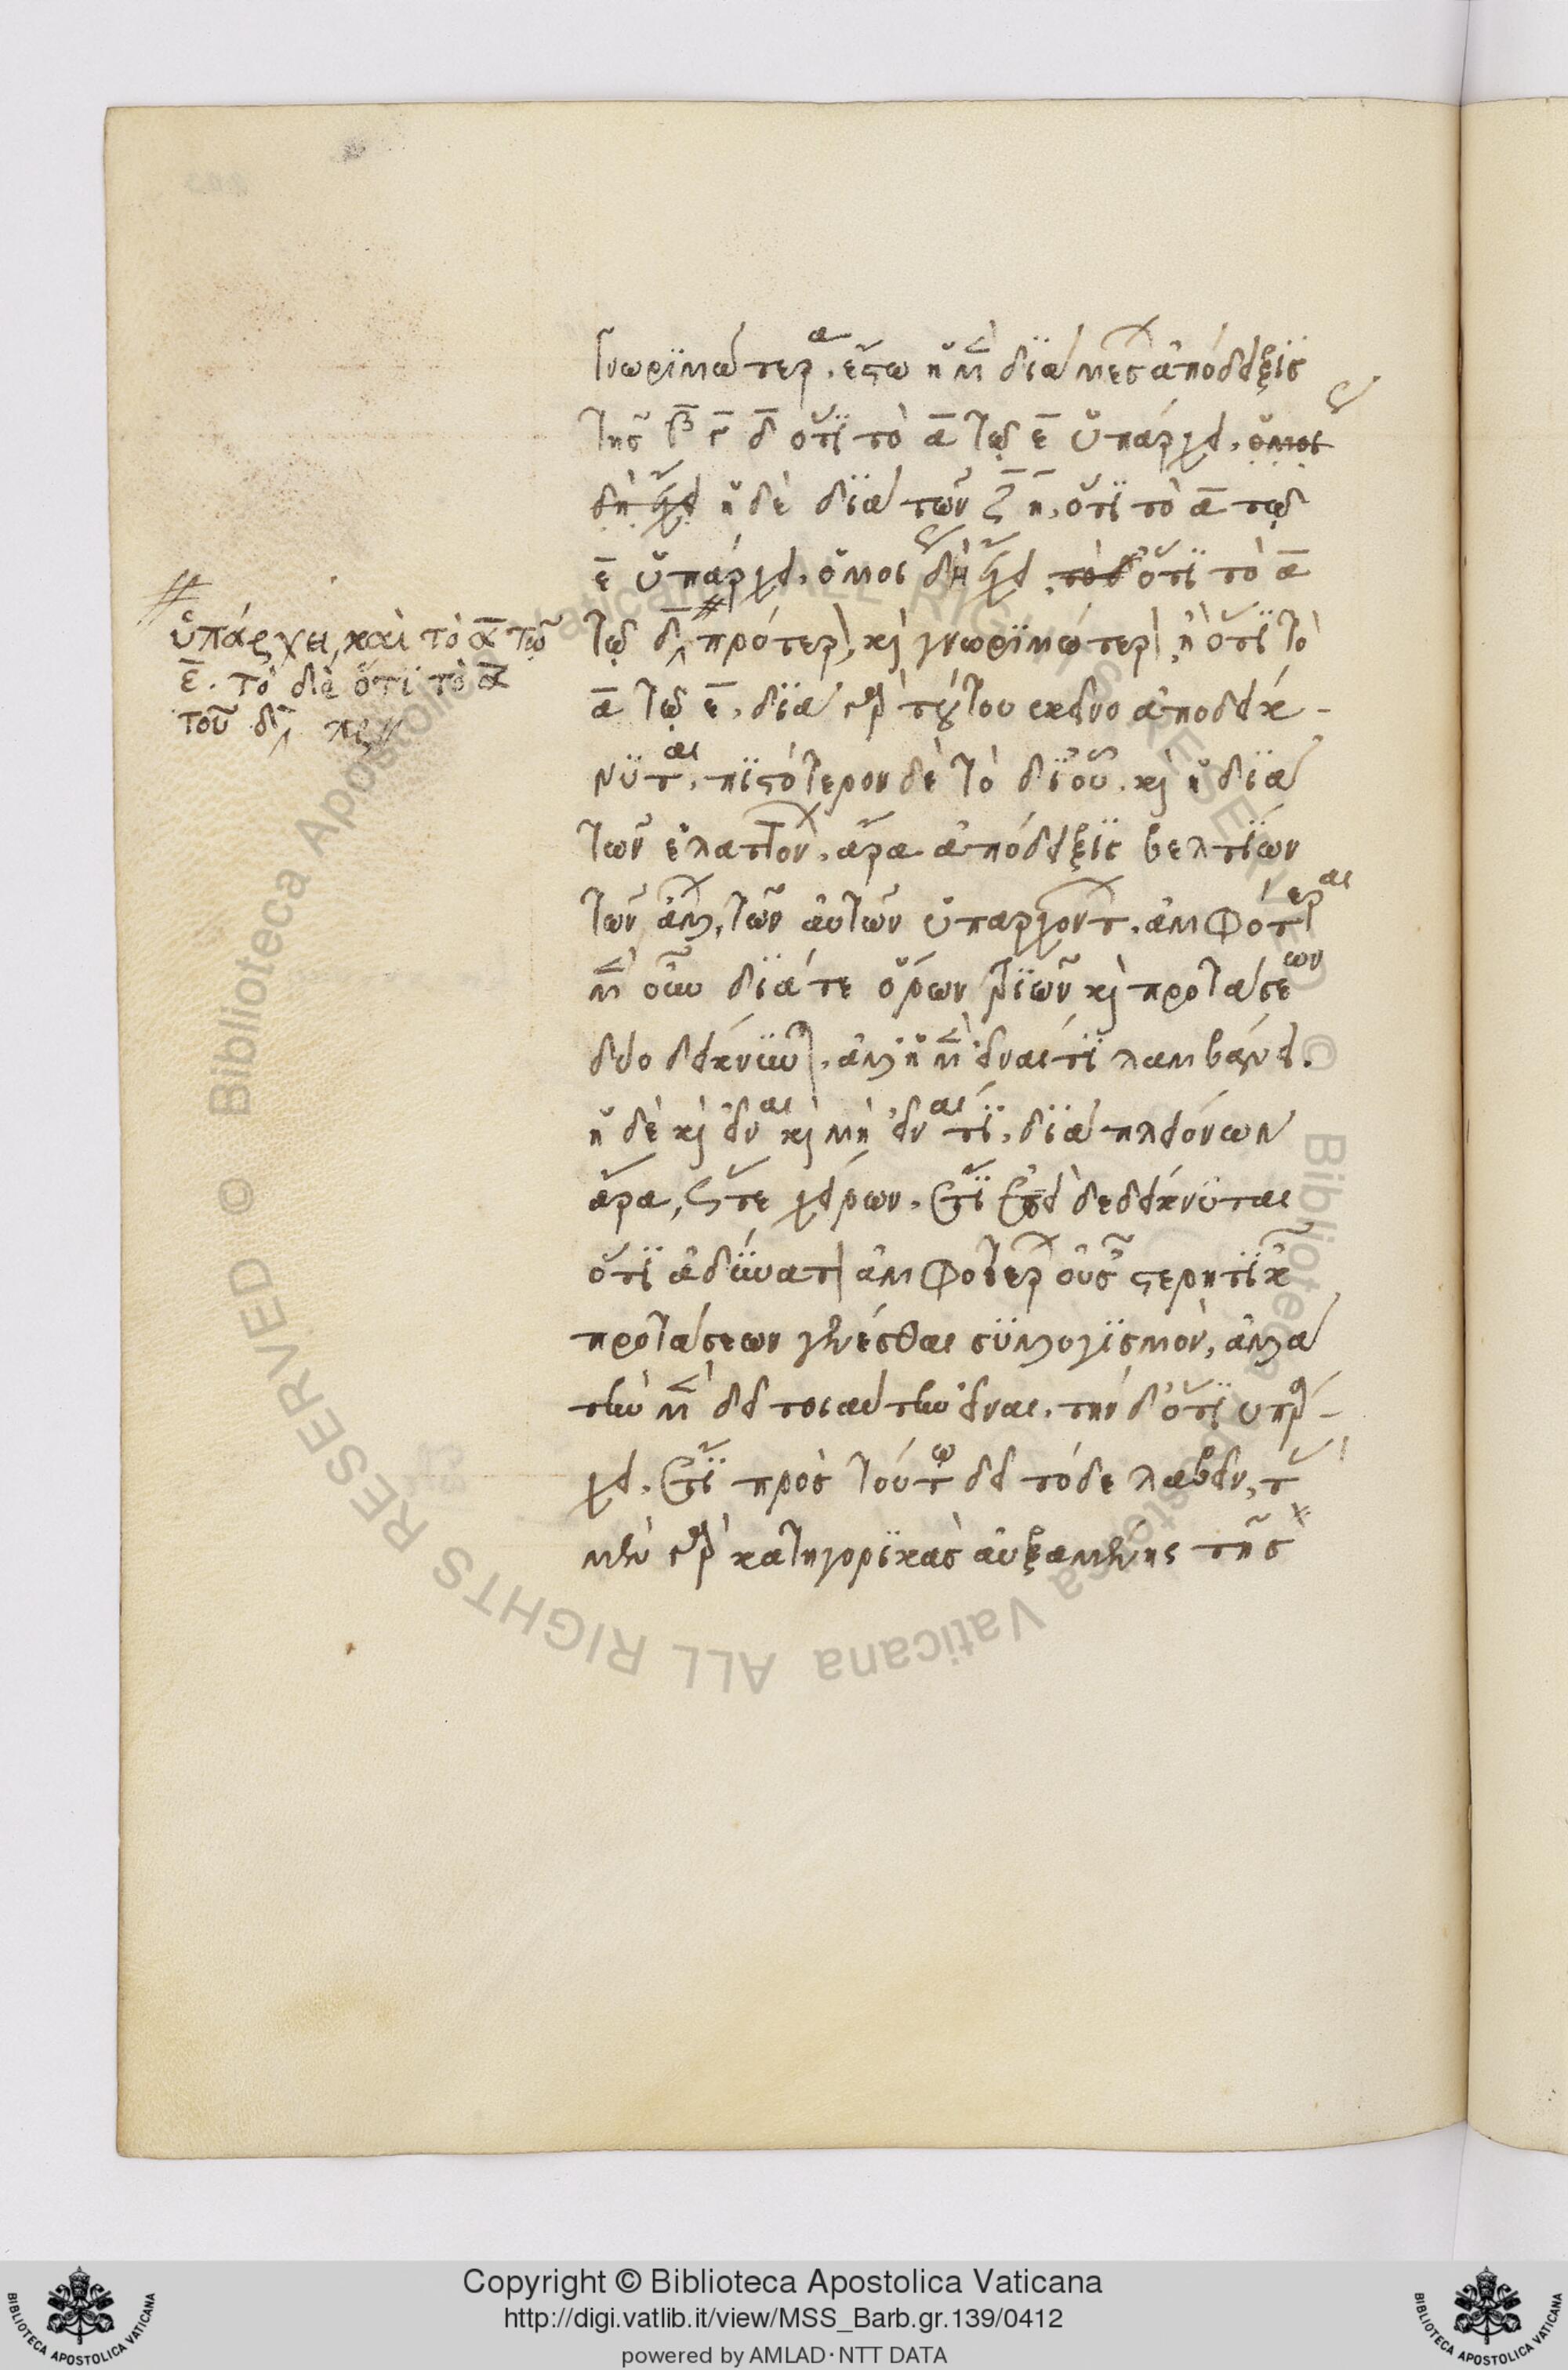 γνωριμωτέρα. ἔστω ἡ μὲν διὰ μέσων ἀπόδειξις
τῆς β̅ γ̅ δ̅ ὅτι τὸ α̅ τῷ ε̅ ὑπάρχει. ὅμοι
δὴ ἔχει ἡ δὲ διὰ τῶν ζ̅ η̅, ὅτι τὸ α̅ τῷ
ε̅ ὑπάρχει. ὁμοίως δὴ ἔχει τὸ δ' ὅτι τὸ α̅
τῷ δ̅ πρότερον, καὶ γνωριμώτερον ἢ ὅτι τὸ
α̅ τῷ ε̅. διὰ γὰρ τούτου ἐκεῖνο ἀποδεί-
νυται. πιστότερον δὲ τὸ δι' οὗ. καὶ ἡ διὰ
τῶν ἐλαττόνων. ἄρα ἀπόδειξις βελτίων
τῶν ἄλλων, τῶν αὐτῶν ὑπαρχόντων. ἀμφότεραι
μὲν οὖν διά τε ὅρων τριῶν καὶ προτάσεων
δύο δείκνυνται. ἀλλ' ἡ μὲν εἶναί τι λαμβάνει.
ἡ δὲ καὶ εἶναι καὶ μὴ εἶναί τι, διὰ πλειόνων
ἄρα, ὥστε χείρων. ἔτι ἐπεὶ δέδεικνυται
ὅτι ἀδύνατον ἀμφοτέρων οὐσῶν στερητικῶν
προτάσεων γενέσθαι συλλογισμὸν, ἀλλὰ
τὴν μὲν δεῖ τοιαύτην εἶναι. τὴν δ' ὅτι ὑπάρ-
χει. ἔτι πρὸς τούτῳ δεῖ τόδε λαβεῖν, τὰς
μὲν γὰρ κατηγορικὰς αὐξανομένης τῆς
ὑπάρχει, καὶ τὸ α̅ τῷ
ε̅. τὸ δὲ ὅτι τὸ α̅
τοῦ δ̅
Copyright © Biblioteca Apostolica Vaticana
http://digi.vatlib.it/view/MSS_Barb.gr.139/0412
powered by AMLAD·NTT DATA
BIBLIOTECA APOSTOLICA VATICANA
BIBLIOTECA APOSTOLICA VATICANA
© Biblioteca Apostolica Vaticana ALL RIGHTS RESERVED © Biblioteca Apostolica Vaticana ALL RIGHTS RESERVED